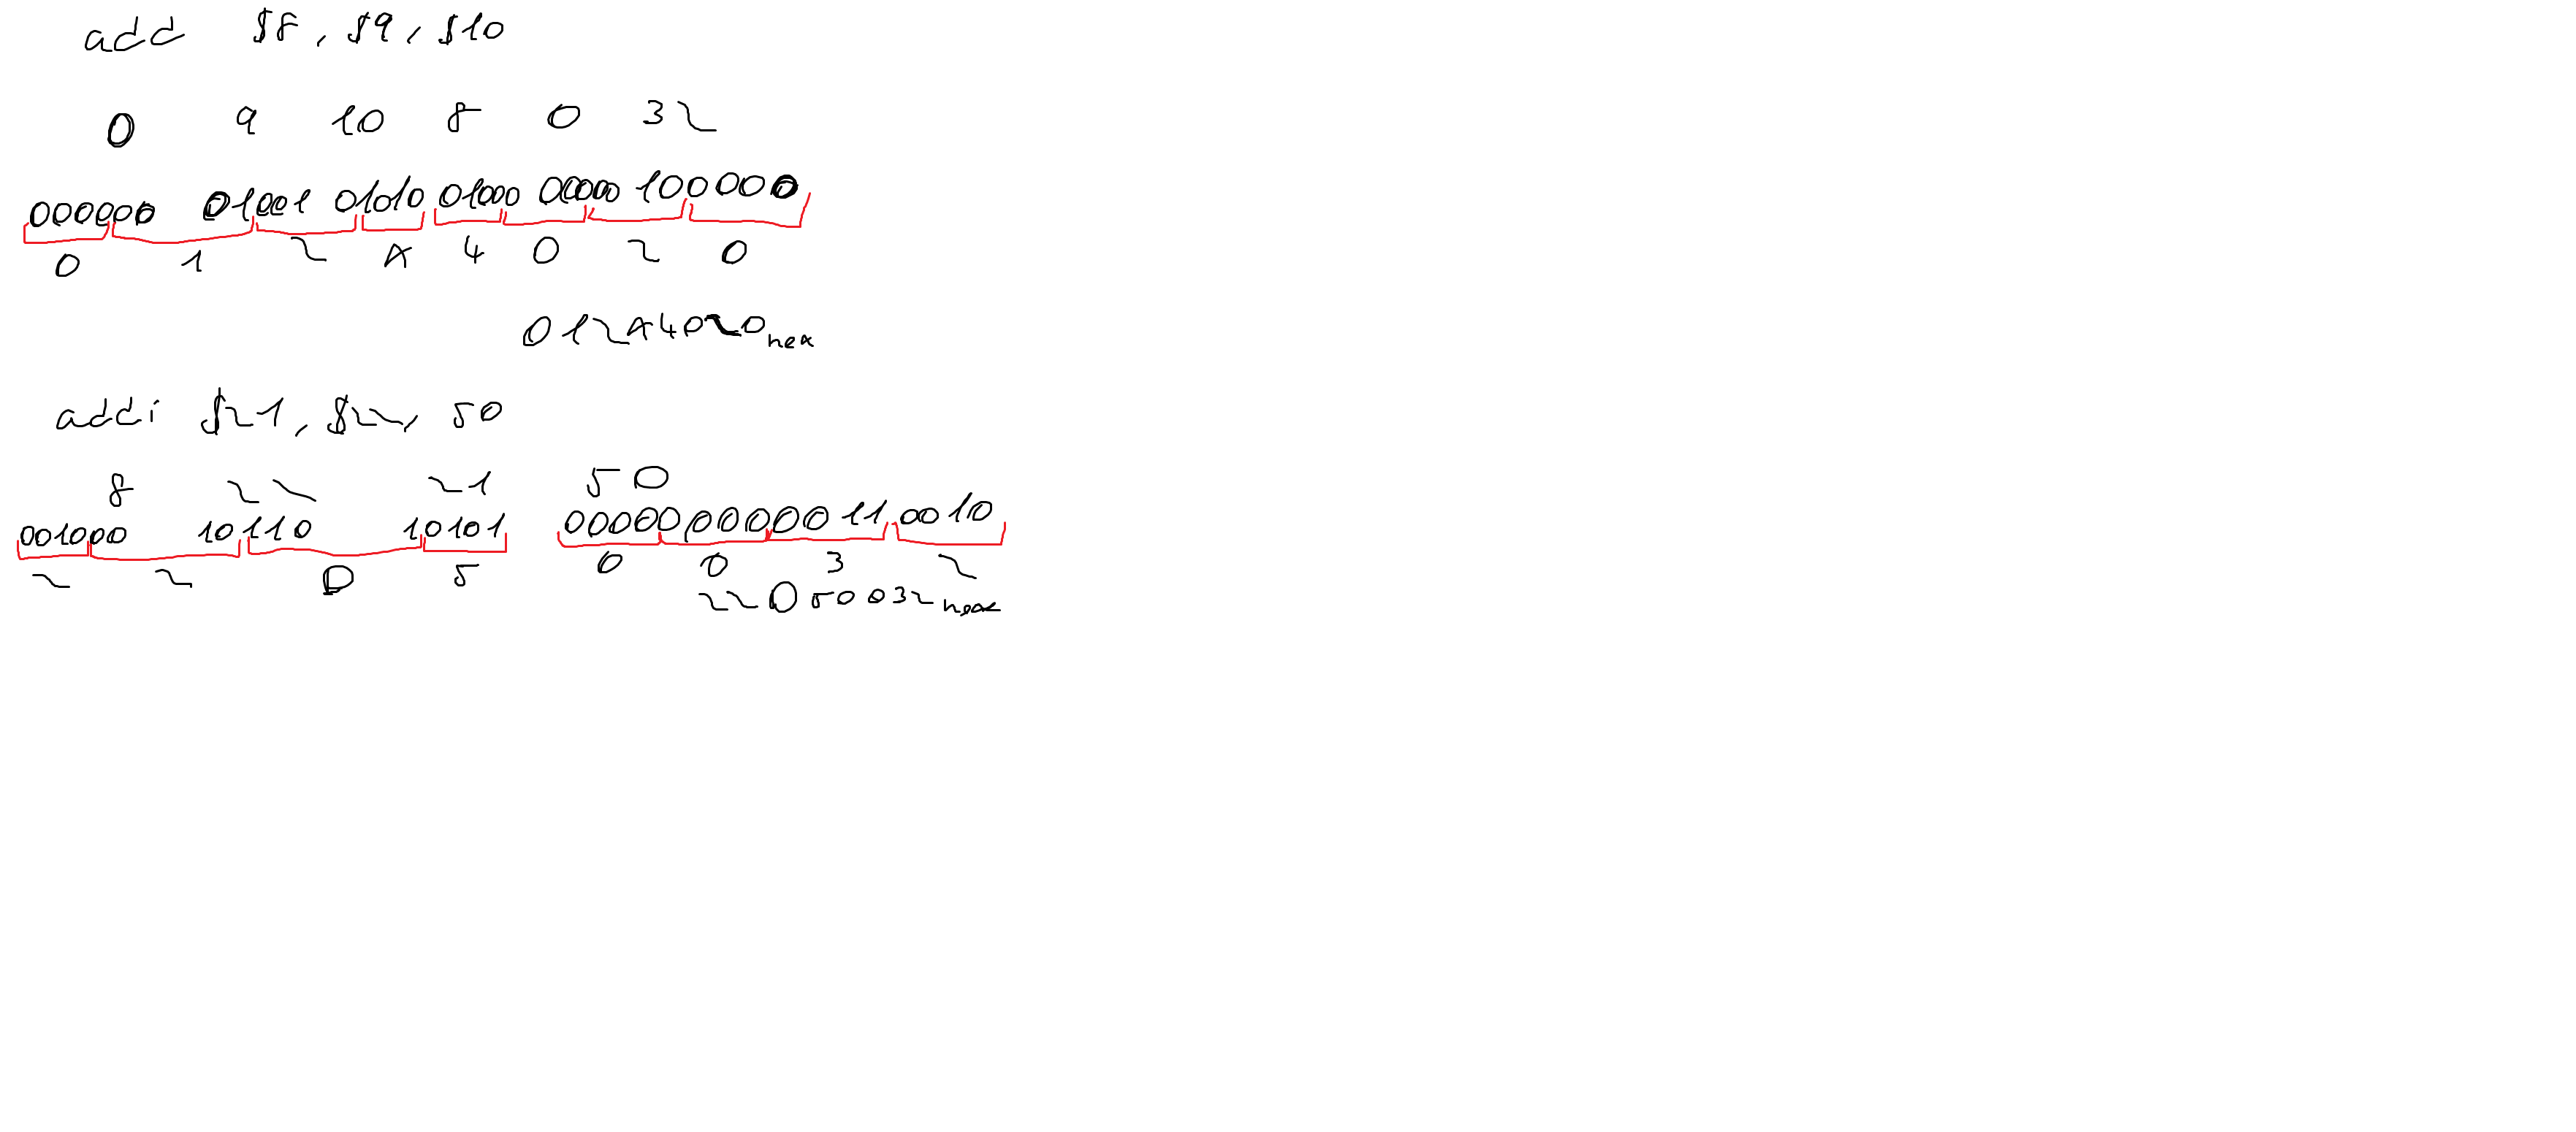 add $8, $9, $10
0 9 10 8 0 32
000000 01001 01010 01000 00000 100000
0 1 2 A 4 0 2 0
012A4020hex
addi $21, $22, 50
8 22 21 50
001000 10110 10101 0000000000110010
2 2 D 5 0 0 3 2
22D50032hex